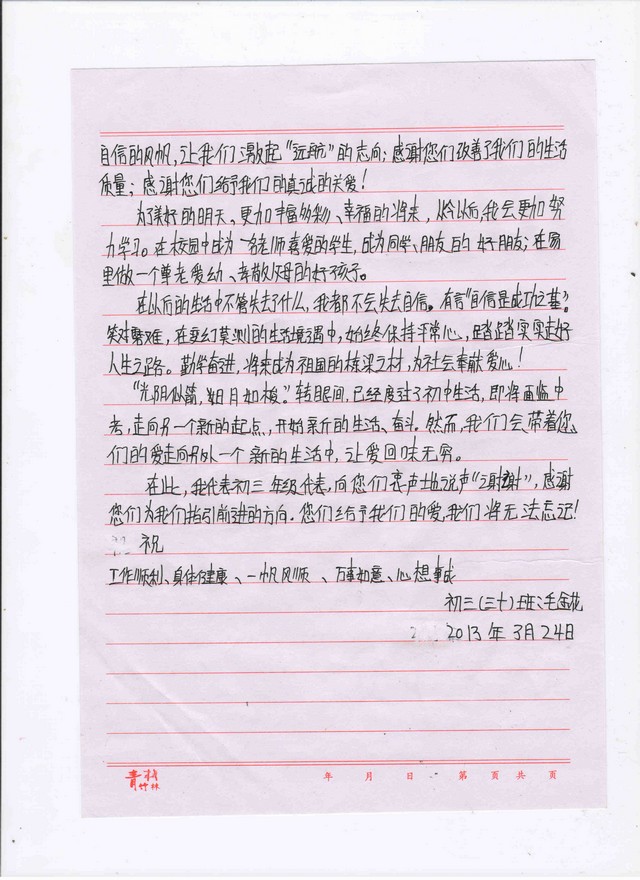 自信的风帆,让我们激起"远航"的志向;感谢您们改善了我们的生活
质量;感谢您们给予我们的真诚的关爱!
为了美好的明天、更加丰富多彩、幸福的将来,从今以后,我会更加努
力学习。在校园中成为一名老师喜爱的学生,成为同学、朋友的好朋友;在家
里做一个尊老爱幼、孝敬父母的好孩子。
在以后的生活中不管失去了什么,我都不会失去自信。有言"自信是成功之基"。
笑对艰难,在变幻莫测的生活境遇中,始终保持平常心,踏踏实实走好
人生之路。勤学奋进,将来成为祖国的栋梁之材,为社会奉献爱心!
"光阴似箭,如日月如梭。"转眼间,已经度过了初中生活,即将面临中
考,走向另一个新的起点,开始新的生活、奋斗。然而,我们会带着您
们的爱走向另外一个新的生活中,让爱回味无穷。
在此,我代表初三年级代表,向您们衷声地说声"谢谢",感谢
您们为我们指引前进的方向.您们给予我们的爱,我们将无法忘记!
祝
工作顺利、身体健康、一帆风顺、万事如意、心想事成
初三(三十)班:毛金花
2013年3月24日
青竹林栈
年 月 日 第 页 共 页